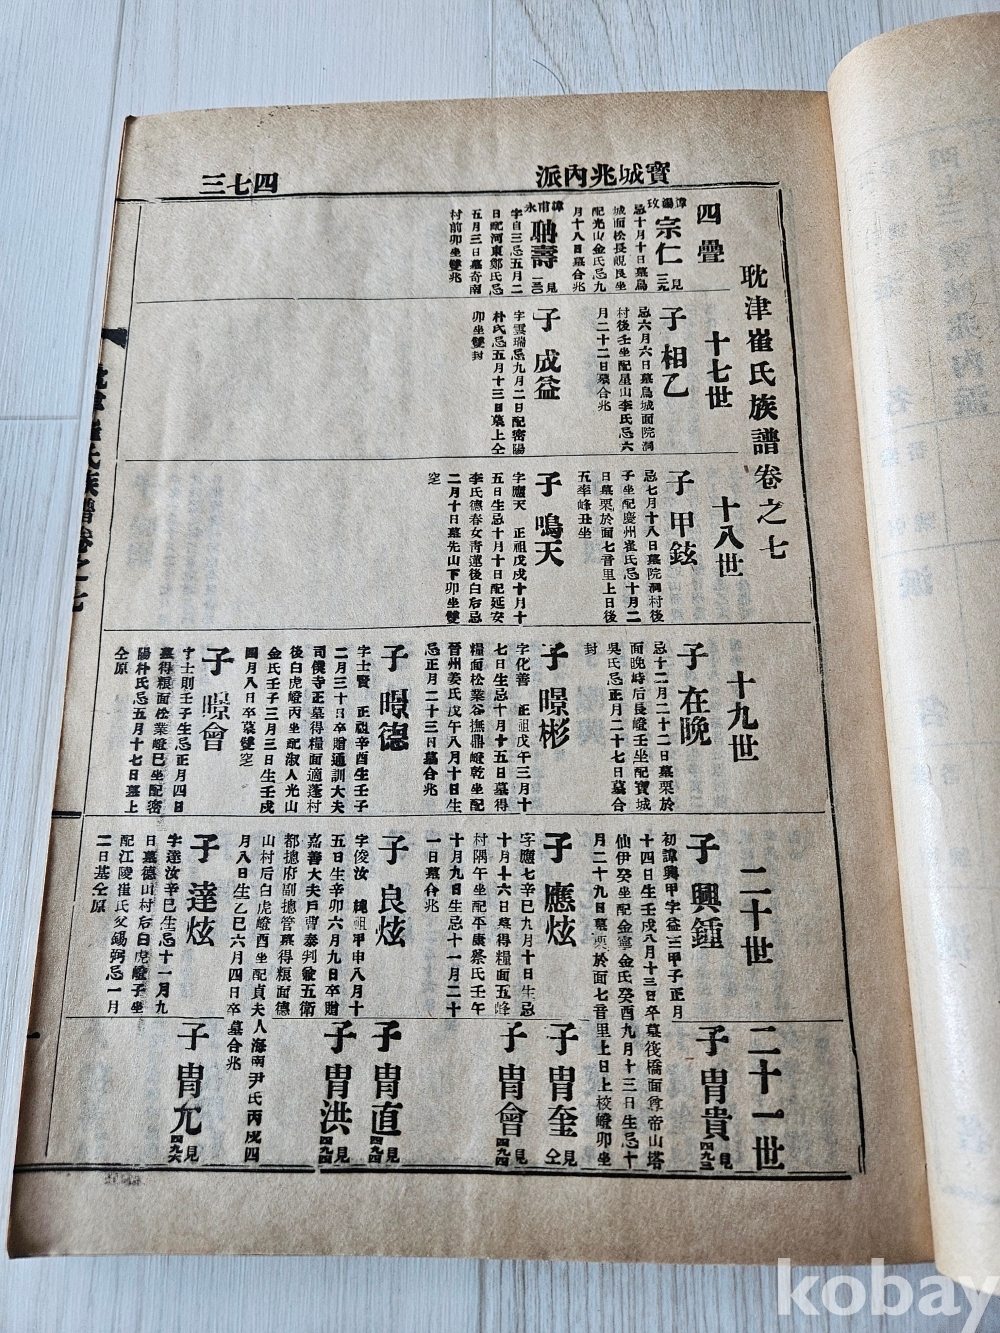 寶城兆內派
四七三
耽津崔氏族譜卷之七
四疊
諱漏玫
宗仁
見
三九
忌十月十日墓烏
城面松長峴艮坐
配光山金氏忌九
月十八日墓合兆
諱甫永
聃壽
見
字自三忌五月二
日配河東鄭氏忌
五月三日墓奇南
村前卯坐雙兆
十七世
子 相乙
忌六月六日墓烏城面院洞
村後壬坐配星山李氏忌六
月二十二日墓合兆
子 成益
字雲瑞忌九月二日配密陽
朴氏忌五月十三日墓上仝
卯坐雙封
十八世
子 甲鉉
忌七月十八日墓院洞村後
子坐配慶州崔氏忌十月二
日墓栗於面七音里上日後
五率峰丑坐
子 鳴天
字應天 正祖戊戌十月十
五日生忌十月十日配延安
李氏德春女靑蓮後白后忌
二月十日墓先山下卯坐雙
窆
十九世
子 在晚
忌十二月二十二日墓栗於
面晚時后長嶝壬坐配寶城
吳氏忌正月二十七日墓合
封
子 暻彬
字化善 正祖戊午三月十
七日生忌十月十五日墓得
糧面松業谷撫鼎嶝乾坐配
晉州姜氏戊午八月十日生
忌正月二十三日墓合兆
子 暻德
字士賢 正祖辛酉生壬子
二月三十日卒贈通訓大夫
司僕寺正墓得糧面適蓬村
後白虎嶝丙坐配淑人光山
金氏壬子三月三日生壬戌
四月八日卒墓雙窆
子 暻會
字士則壬子生忌正月四日
墓得粮面松業嶝巳坐配密
陽朴氏忌五月十七日墓上
仝原
二十世
子 興鍾
初諱興甲字益三甲子正月
十四日生壬戌八月十三日卒墓筏橋面尊帝山塔
仙伊癸坐配金寧金氏癸酉九月十三日生忌十
月二十九日墓栗於面七音里上日上校嶝卯坐
子 應炫
字應七辛巳九月十日生忌
十月十六日墓得糧面五峰
村隅午坐配平康蔡氏壬午
十月九日生忌十一月二十
一日墓合兆
子 良炫
字俊汝 純祖甲申八月十
五日生辛卯六月九日卒贈
嘉善大夫戶曹叅判兼五衛
都摠府副摠管墓得粮面德
山村后白虎嶝酉坐配貞夫人海南尹氏丙戌四
月八日生乙巳六月四日卒墓合兆
子 達炫
字達汝辛巳生忌十一月九
日墓德山村后白虎嶝子坐
配江陵崔氏父錫弼忌一月
二日墓仝原
二十一世
子 冑貴
見
四九三
子 冑奎
見
仝
子 冑會
見
四九四
子 冑直
見
四九四
子 冑洪
見
四九四
子 冑允
見
四九六
耽津崔氏族譜卷之七
kobay